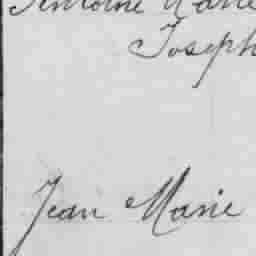 Antoine Marie
Joseph
Jean Marie